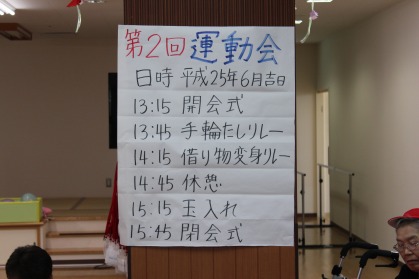 第2回運動会
日時 平成25年6月吉日
13:15 開会式
13:45 手輪たしリレー
14:15 借り物変身リレー
14:45 休憩
15:15 玉入れ
15:45 閉会式